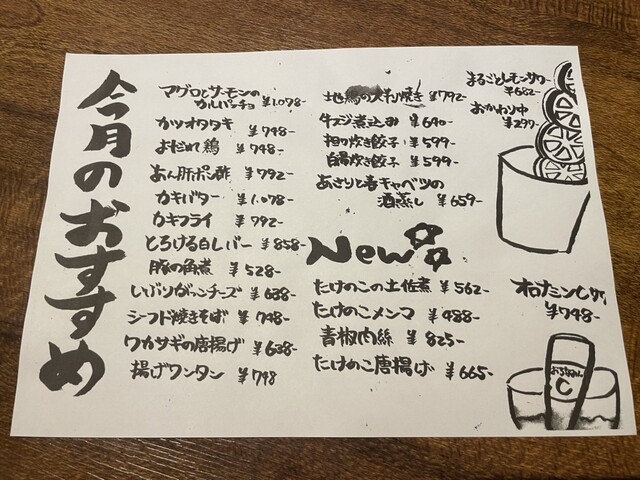 今月のおすすめ
マグロとサーモンの
カルパッチョ ¥1.078-
カツオタタキ ¥748-
よだれ鶏 ¥748-
あん肝ポン酢 ¥792-
カキバター ¥1.078-
カキフライ ¥792-
とろける白レバー ¥858-
豚の角煮 ¥528-
いぶりがっこチーズ ¥638-
シーフド焼きそば ¥748-
ワカサギの唐揚げ ¥638-
揚げワンタン ¥798
地鶏の大判焼き ¥792-
牛スジ煮込み ¥640-
担々炊き餃子 ¥599-
白湯炊き餃子 ¥599-
あさりと春キャベツの
酒蒸し ¥659-
New
たけのこの土佐煮 ¥562-
たけのこメンマ ¥488-
青椒肉絲 ¥825-
たけのこ唐揚げ ¥665-
まるごとレモンサワー
¥682-
おかわり中
¥297-
オロナミンCサワー
¥748-
おろなみん
C